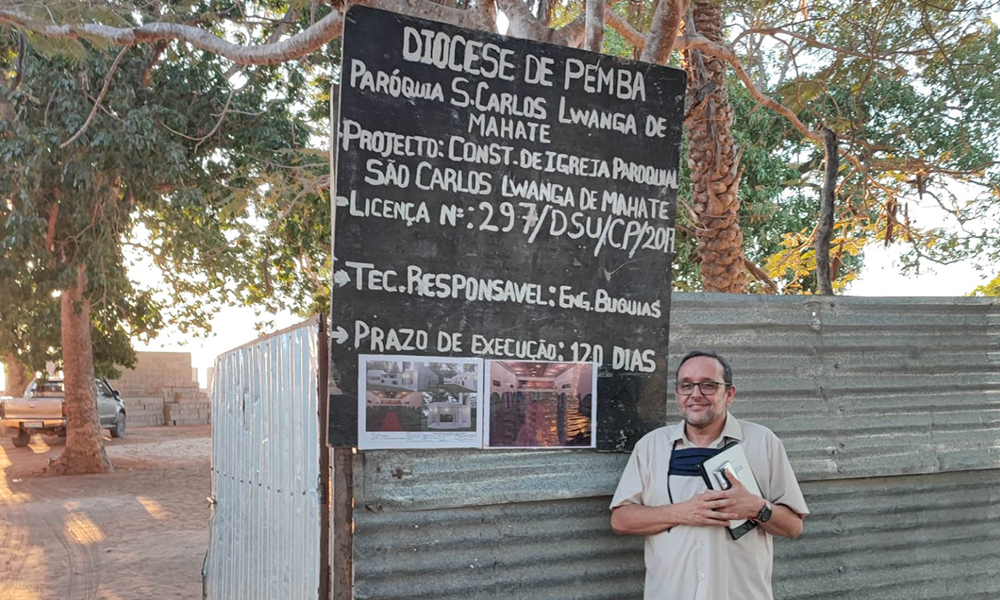 DIOCESE DE PEMBA
PARÓQUIA S. CARLOS LWANGA DE
MAHATE
PROJECTO: CONST. DE IGREJA PAROQUIAL
SÃO CARLOS LWANGA DE MAHATE
LICENÇA Nº: 297/DSU/CP/2019
TEC. RESPONSAVEL: ENG. BUQUIAS
PRAZO DE EXECUÇÃO: 120 DIAS